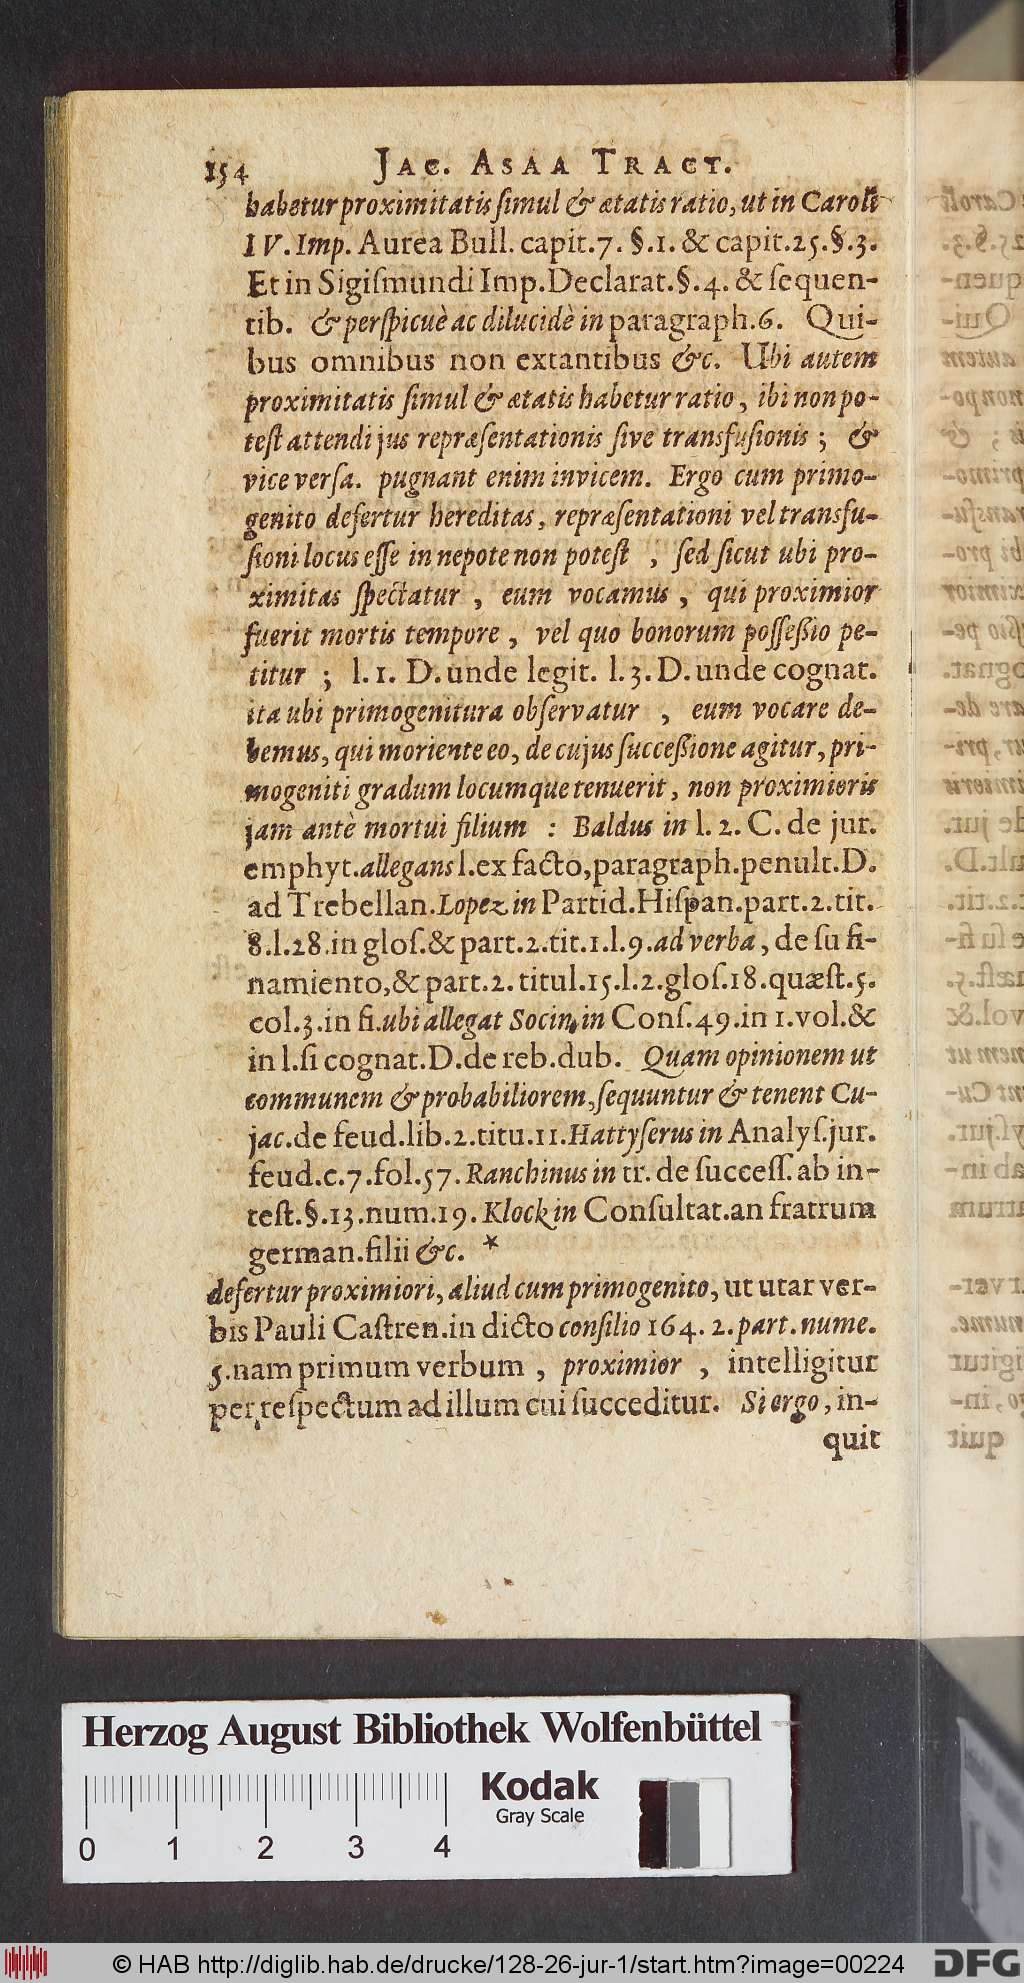 154 JAC. ASAA TRACT.
habetur proximitatis ſimul & ætatis ratio, ut in Caroli
IV. Imp. Aurea Bull. capit. 7. §. 1. & capit. 25. §. 3.
Et in Sigiſmundi Imp. Declarat. §. 4. & ſequen-
tib. & perſpicuè ac dilucidè in paragraph. 6. Qui-
bus omnibus non extantibus &c. Ubi autem
proximitatis ſimul & ætatis habetur ratio, ibi non po-
teſt attendi jus repræſentationis ſive transfuſionis ; &
vice verſa. pugnant enim invicem. Ergo cum primo-
genito defertur hereditas, repræſentationi vel transfu-
ſioni locus eſſe in nepote non poteſt , ſed ſicut ubi pro-
ximitas ſpectatur , eum vocamus , qui proximior
fuerit mortis tempore , vel quo bonorum poſſeßio pe-
titur ; l. 1. D. unde legit. l. 3. D. unde cognat.
ita ubi primogenitura obſervatur , eum vocare de-
bemus, qui moriente eo, de cujus ſucceßione agitur, pri-
mogeniti gradum locumque tenuerit, non proximioris
jam antè mortui filium : Baldus in l. 2. C. de jur.
emphyt. allegans l. ex facto, paragraph. penult. D.
ad Trebellan. Lopez in Partid. Hiſpan. part. 2. tit.
8. l. 28. in gloſ. & part. 2. tit. 1. l. 9. ad verba, de ſu fi-
namiento, & part. 2. titul. 15. l. 2. gloſ. 18. quæſt. 5.
col. 3. in fi. ubi allegat Socin. in Conſ. 49. in 1. vol. &
in l. ſi cognat. D. de reb. dub. Quam opinionem ut
communem & probabiliorem, ſequuntur & tenent Cu-
jac. de feud. lib. 2. titu. 11. Hattyſerus in Analyſ. jur.
feud. c. 7. fol. 57. Ranchinus in tr. de ſucceſſ. ab in-
teſt. §. 13. num. 19. Klock in Conſultat. an fratrum
german. filii &c. *
defertur proximiori, aliud cum primogenito, ut utar ver-
bis Pauli Caſtren. in dicto conſilio 164. 2. part. nume.
5. nam primum verbum , proximior , intelligitur
per reſpectum ad illum cui ſucceditur. Si ergo, in-
quit
Herzog August Bibliothek Wolfenbüttel
Kodak
Gray Scale
0 1 2 3 4
© HAB http://diglib.hab.de/drucke/128-26-jur-1/start.htm?image=00224
DFG